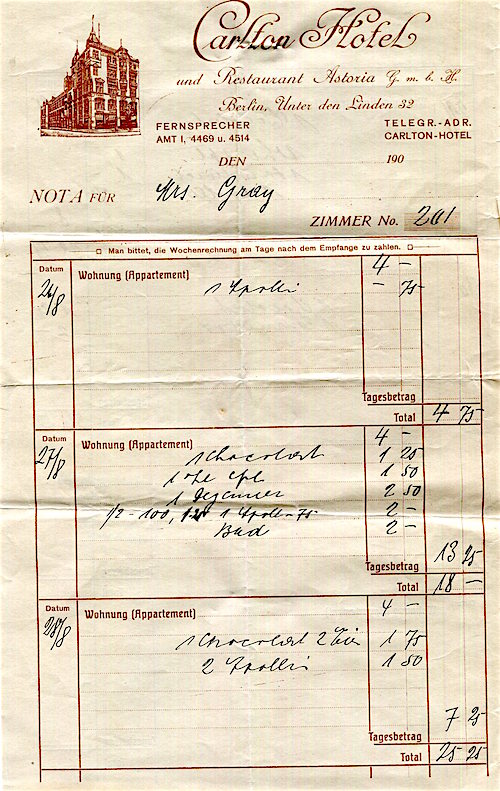 Carlton Hotel
und Restaurant Astoria G. m. b. H.
Berlin, Unter den Linden 32
FERNSPRECHER
AMT I, 4469 u. 4514
TELEGR.-ADR.
CARLTON-HOTEL
DEN 190
NOTA FÜR Mrs. Gray
ZIMMER No. 201
Man bittet, die Wochenrechnung am Tage nach dem Empfange zu zahlen.
Datum
26/8
Wohnung (Appartement) 4 —
1 Apolli — 75
Tagesbetrag
Total 4 75
Datum
27/8
Wohnung (Appartement) 4 —
1 Chocolat 1 25
1 50
1 Dejeuner 2 50
1/2 - 100, 1 Apoll - 75 2 —
Bad 2 —
Tagesbetrag 13 25
Total 18 —
Datum
28/8
Wohnung (Appartement) 4 —
1 Chocolat 2 Eier 1 75
2 Apolli 1 50
Tagesbetrag 7 25
Total 25 25